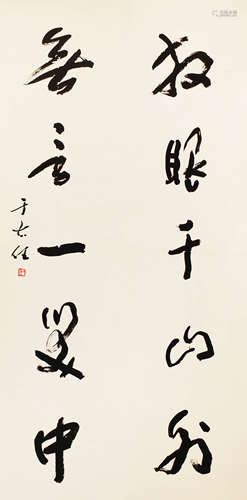 放眼千山外
無言一笑中
于右任